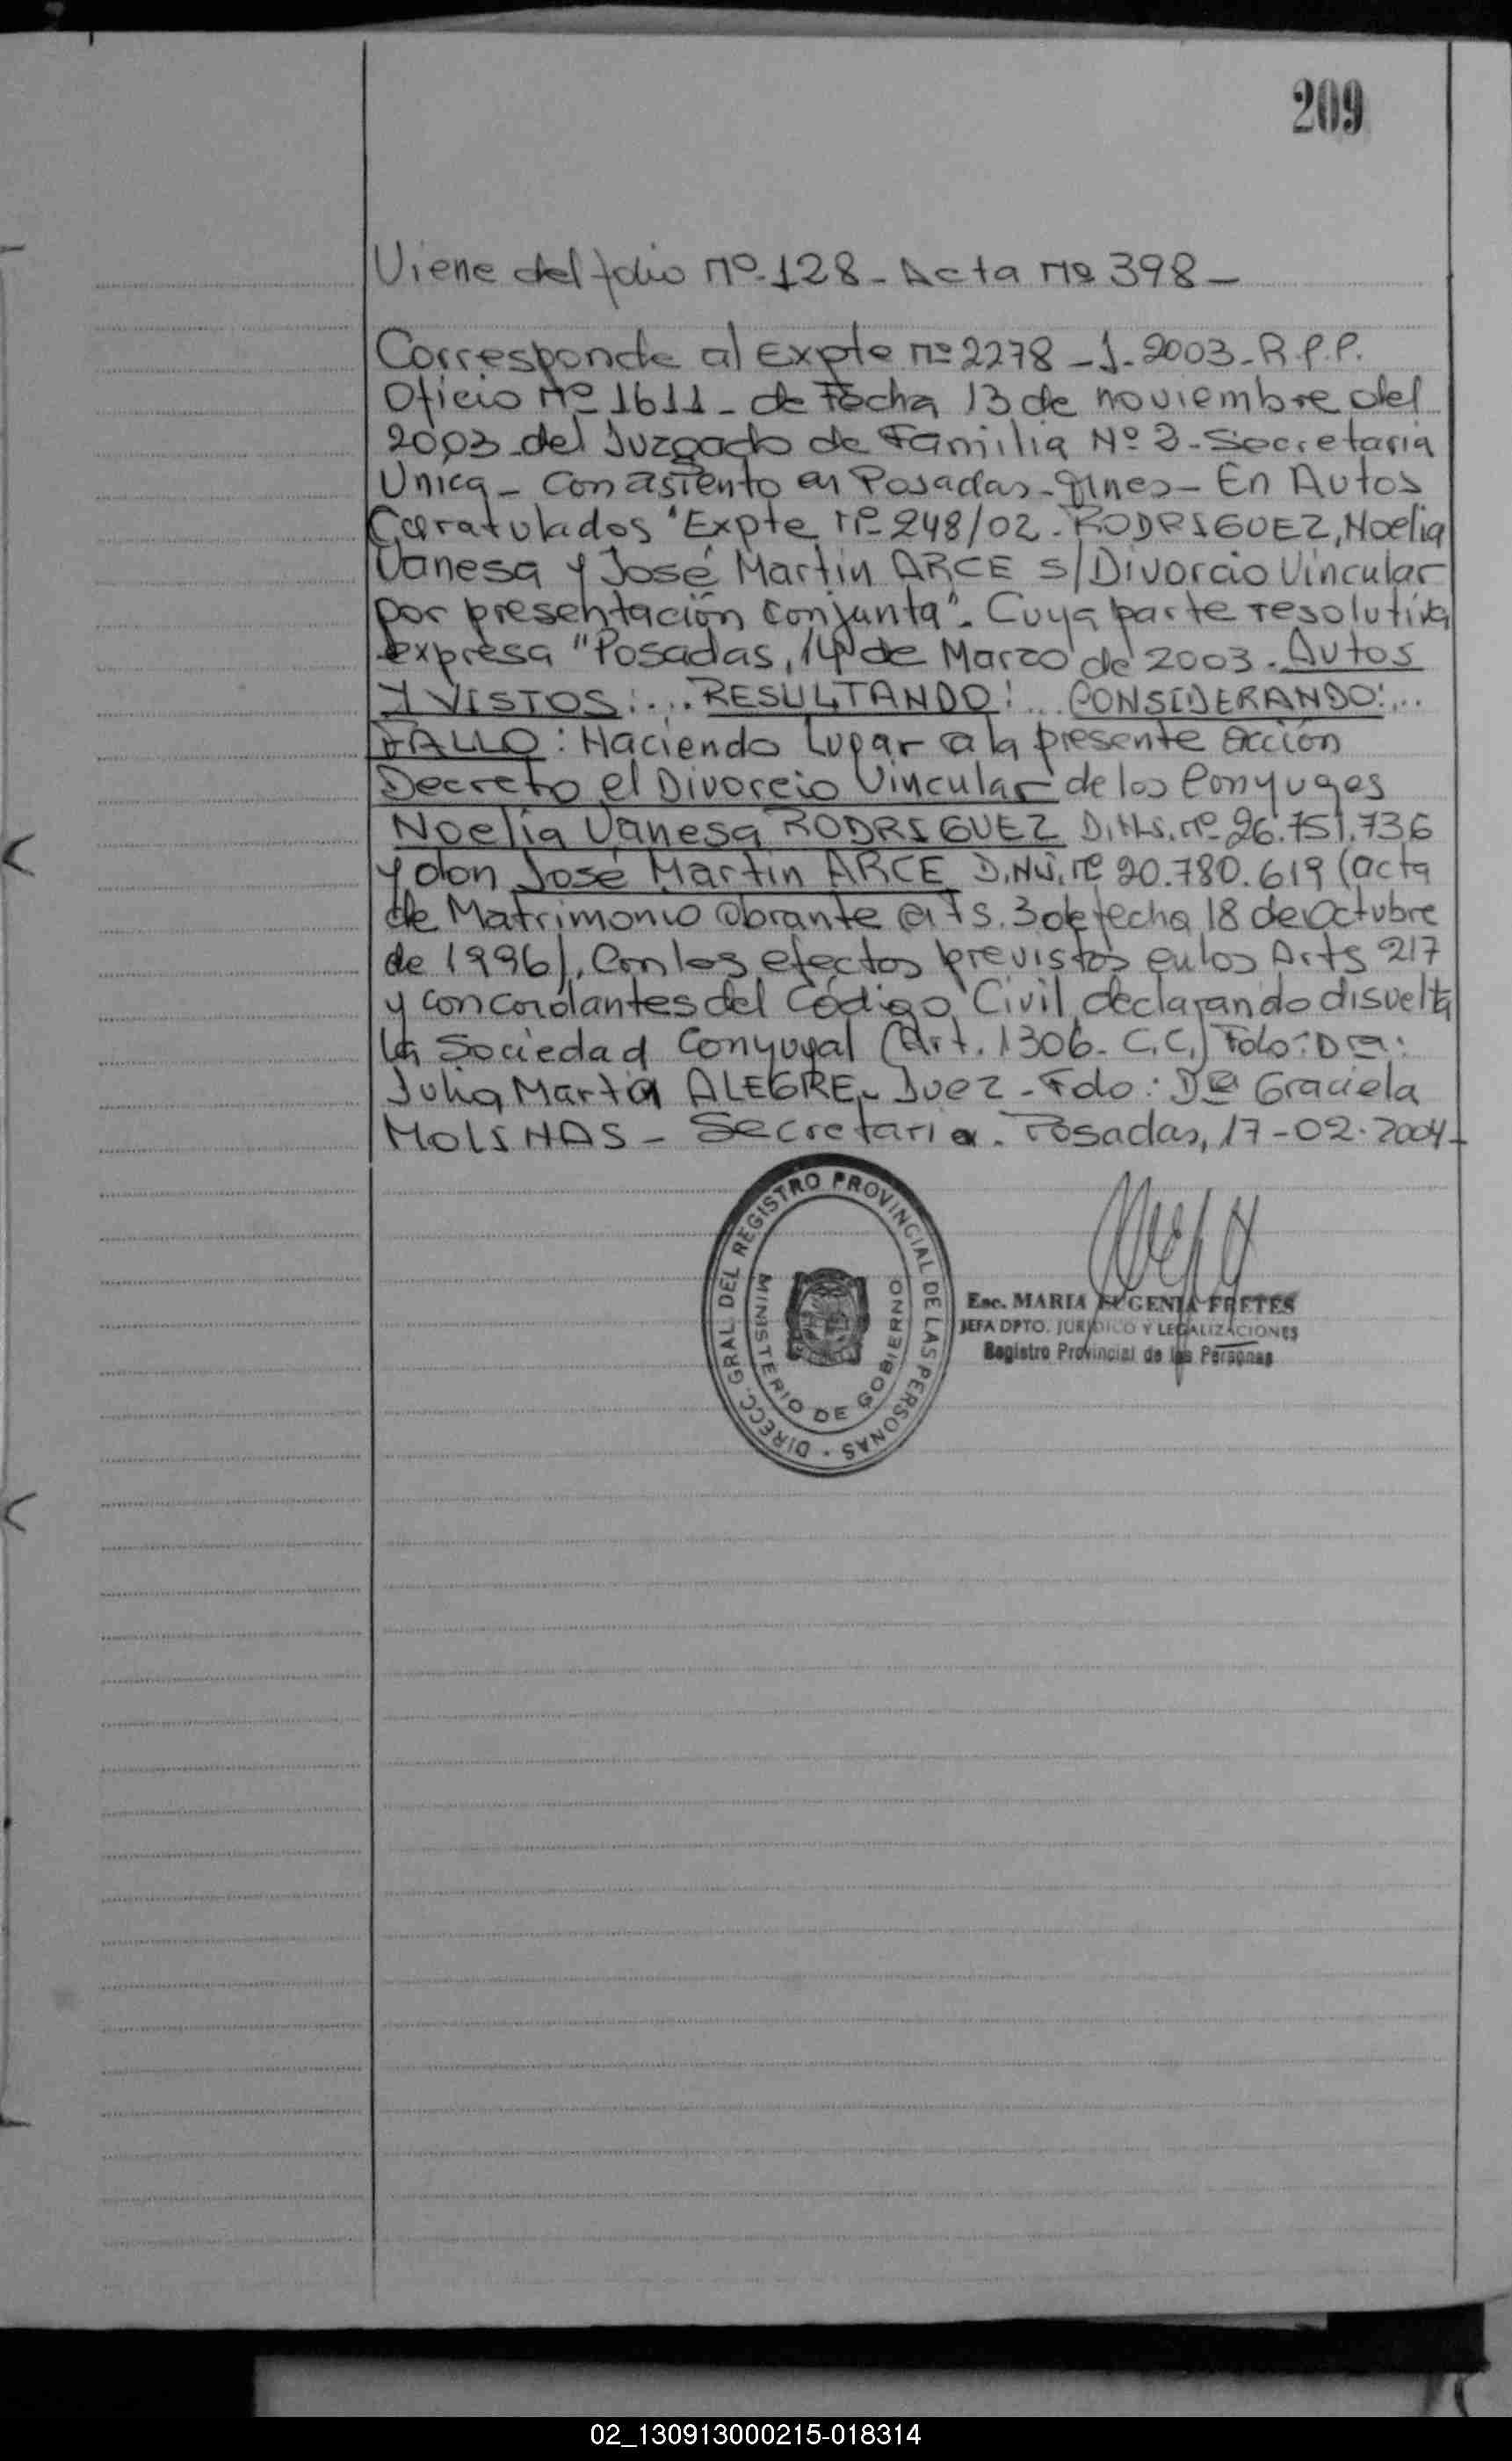 209
Viene del folio nº 128 - Acta nº 398 -
Corresponde al Expte nº 2278 - J - 2003 - R.P.P.
Oficio Nº 1611 - de Fecha 13 de noviembre del
2003 - del Juzgado de Familia Nº 2 - Secretaria
Unica - Con asiento en Posadas - Mnes - En Autos
Caratulados "Expte nº 248/02 - RODRIGUEZ, Noelia
Vanesa y José Martin ARCE s/ Divorcio Vincular
por presentación conjunta". Cuya parte resolutiva
expresa "Posadas, 14 de Marzo de 2003. Autos
Y VISTOS: ... RESULTANDO: ... CONSIDERANDO: ...
FALLO: Haciendo lugar a la presente acción
Decreto el Divorcio Vincular de los Conyuges
Noelia Vanesa RODRIGUEZ D.N.I. nº 26.751.736
y don José Martin ARCE D.N.I. nº 20.780.619 (acta
de Matrimonio obrante a Fs. 3 de fecha 18 de Octubre
de 1996), con los efectos previstos en los Arts 217
y concordantes del Código Civil, declarando disuelta
la Sociedad Conyugal (Art. 1306 - C.C.) Fdo: Dra:
Julia Marta ALEGRE - Juez - Fdo: Dra Graciela
MOLINAS - Secretaria. Posadas, 17-02-2004 -
DIRECC. GRAL. DEL REGISTRO PROVINCIAL DE LAS PERSONAS
MINISTERIO DE GOBIERNO
Esc. MARIA EUGENIA FRETES
JEFA DPTO. JURIDICO Y LEGALIZACIONES
Registro Provincial de las Personas
02_130913000215-018314